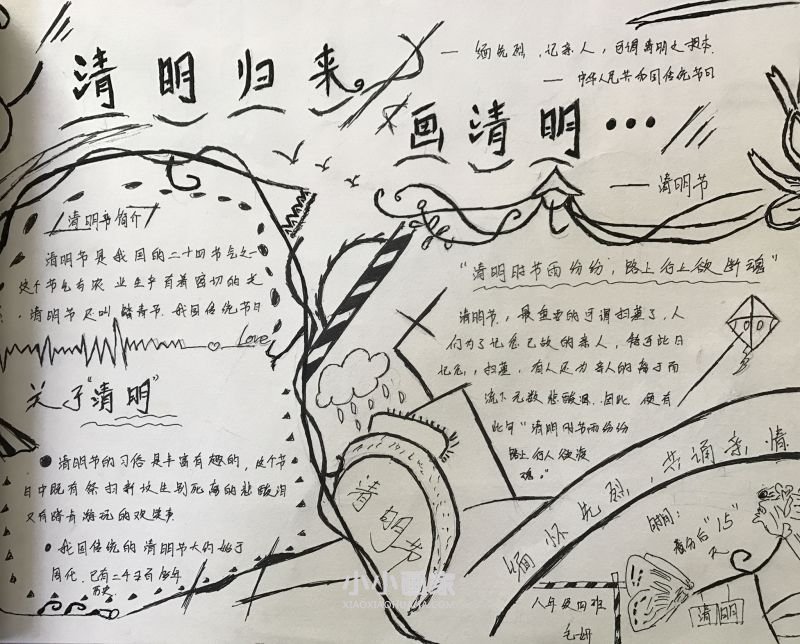 清明归来
— 缅先烈、记亲人,可谓清明之根本.
— 中华人民共和国传统节日
画清明•••
—— 清明节
清明节简介
清明节是我国的二十四节气之一
这个节气与农业生产有着密切的关
,清明节又叫踏青节.我国传统节日
Love
关于“清明”
清明节的习俗是丰富有趣的,这个节
日中既有祭扫新坟生别死离的悲酸泪
又有踏青游玩的欢笑声
我国传统的清明节大约始于
周代,已有二千五百多年
历史.
“清明时节雨纷纷,路上行人欲断魂”
清明节,最重要的可谓扫墓了,人
们为了记念已故的亲人,
记念,扫墓,有人还为亲人的离于而
流下无数悲酸泪.因此,便有
此句“清明时节雨纷纷
路上行人欲断
魂。”
清明节
缅怀先烈,共诵亲情
时间:
春分后“15”
天
八年级四班
清明
小小画家
XIAOXIAOHUAJIA.COM